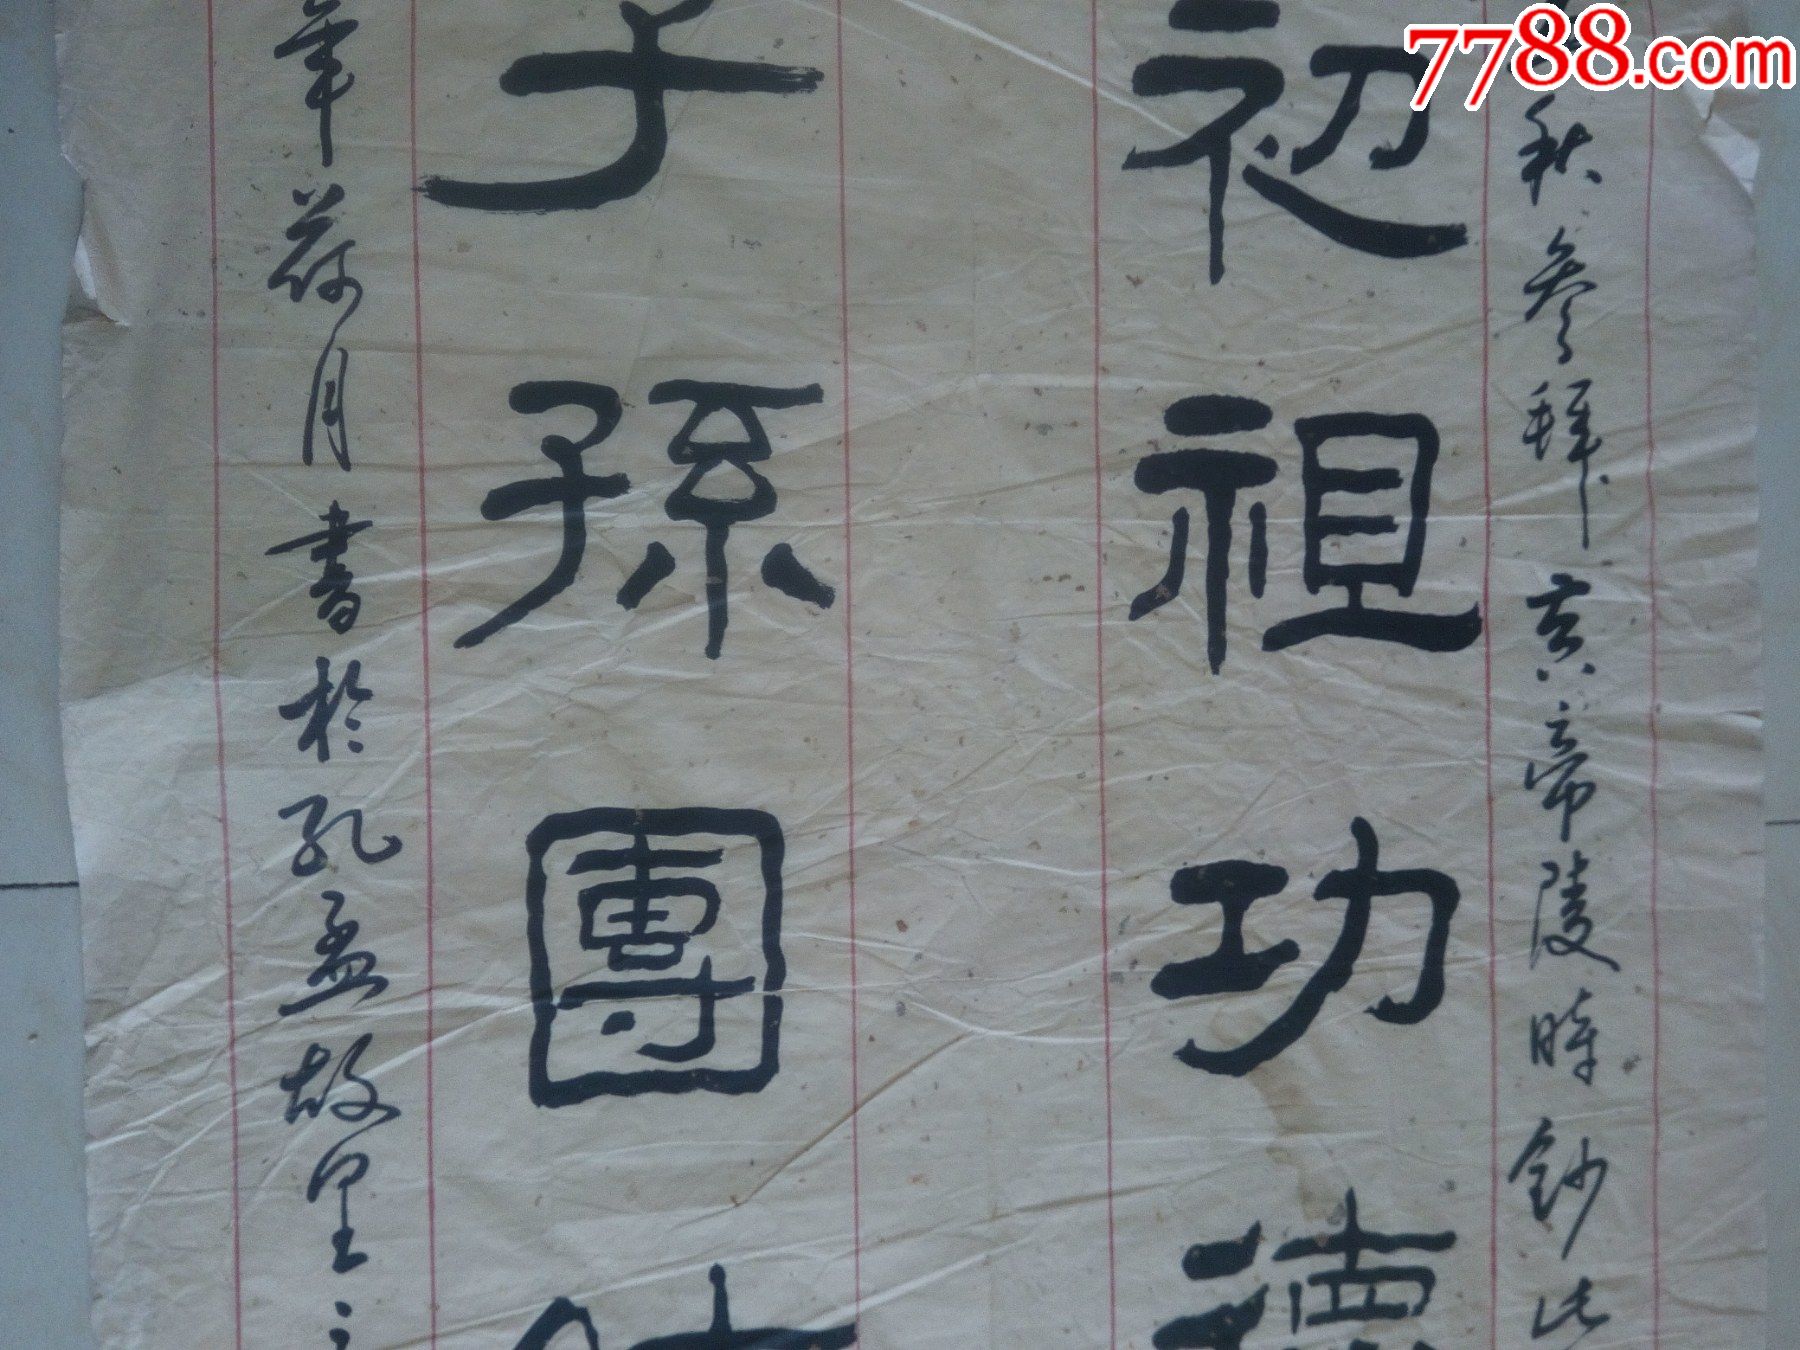 7788.com
秋參拜黃帝陵時鈔此
初祖功德
子孫團
年荷月書於孔孟故里之